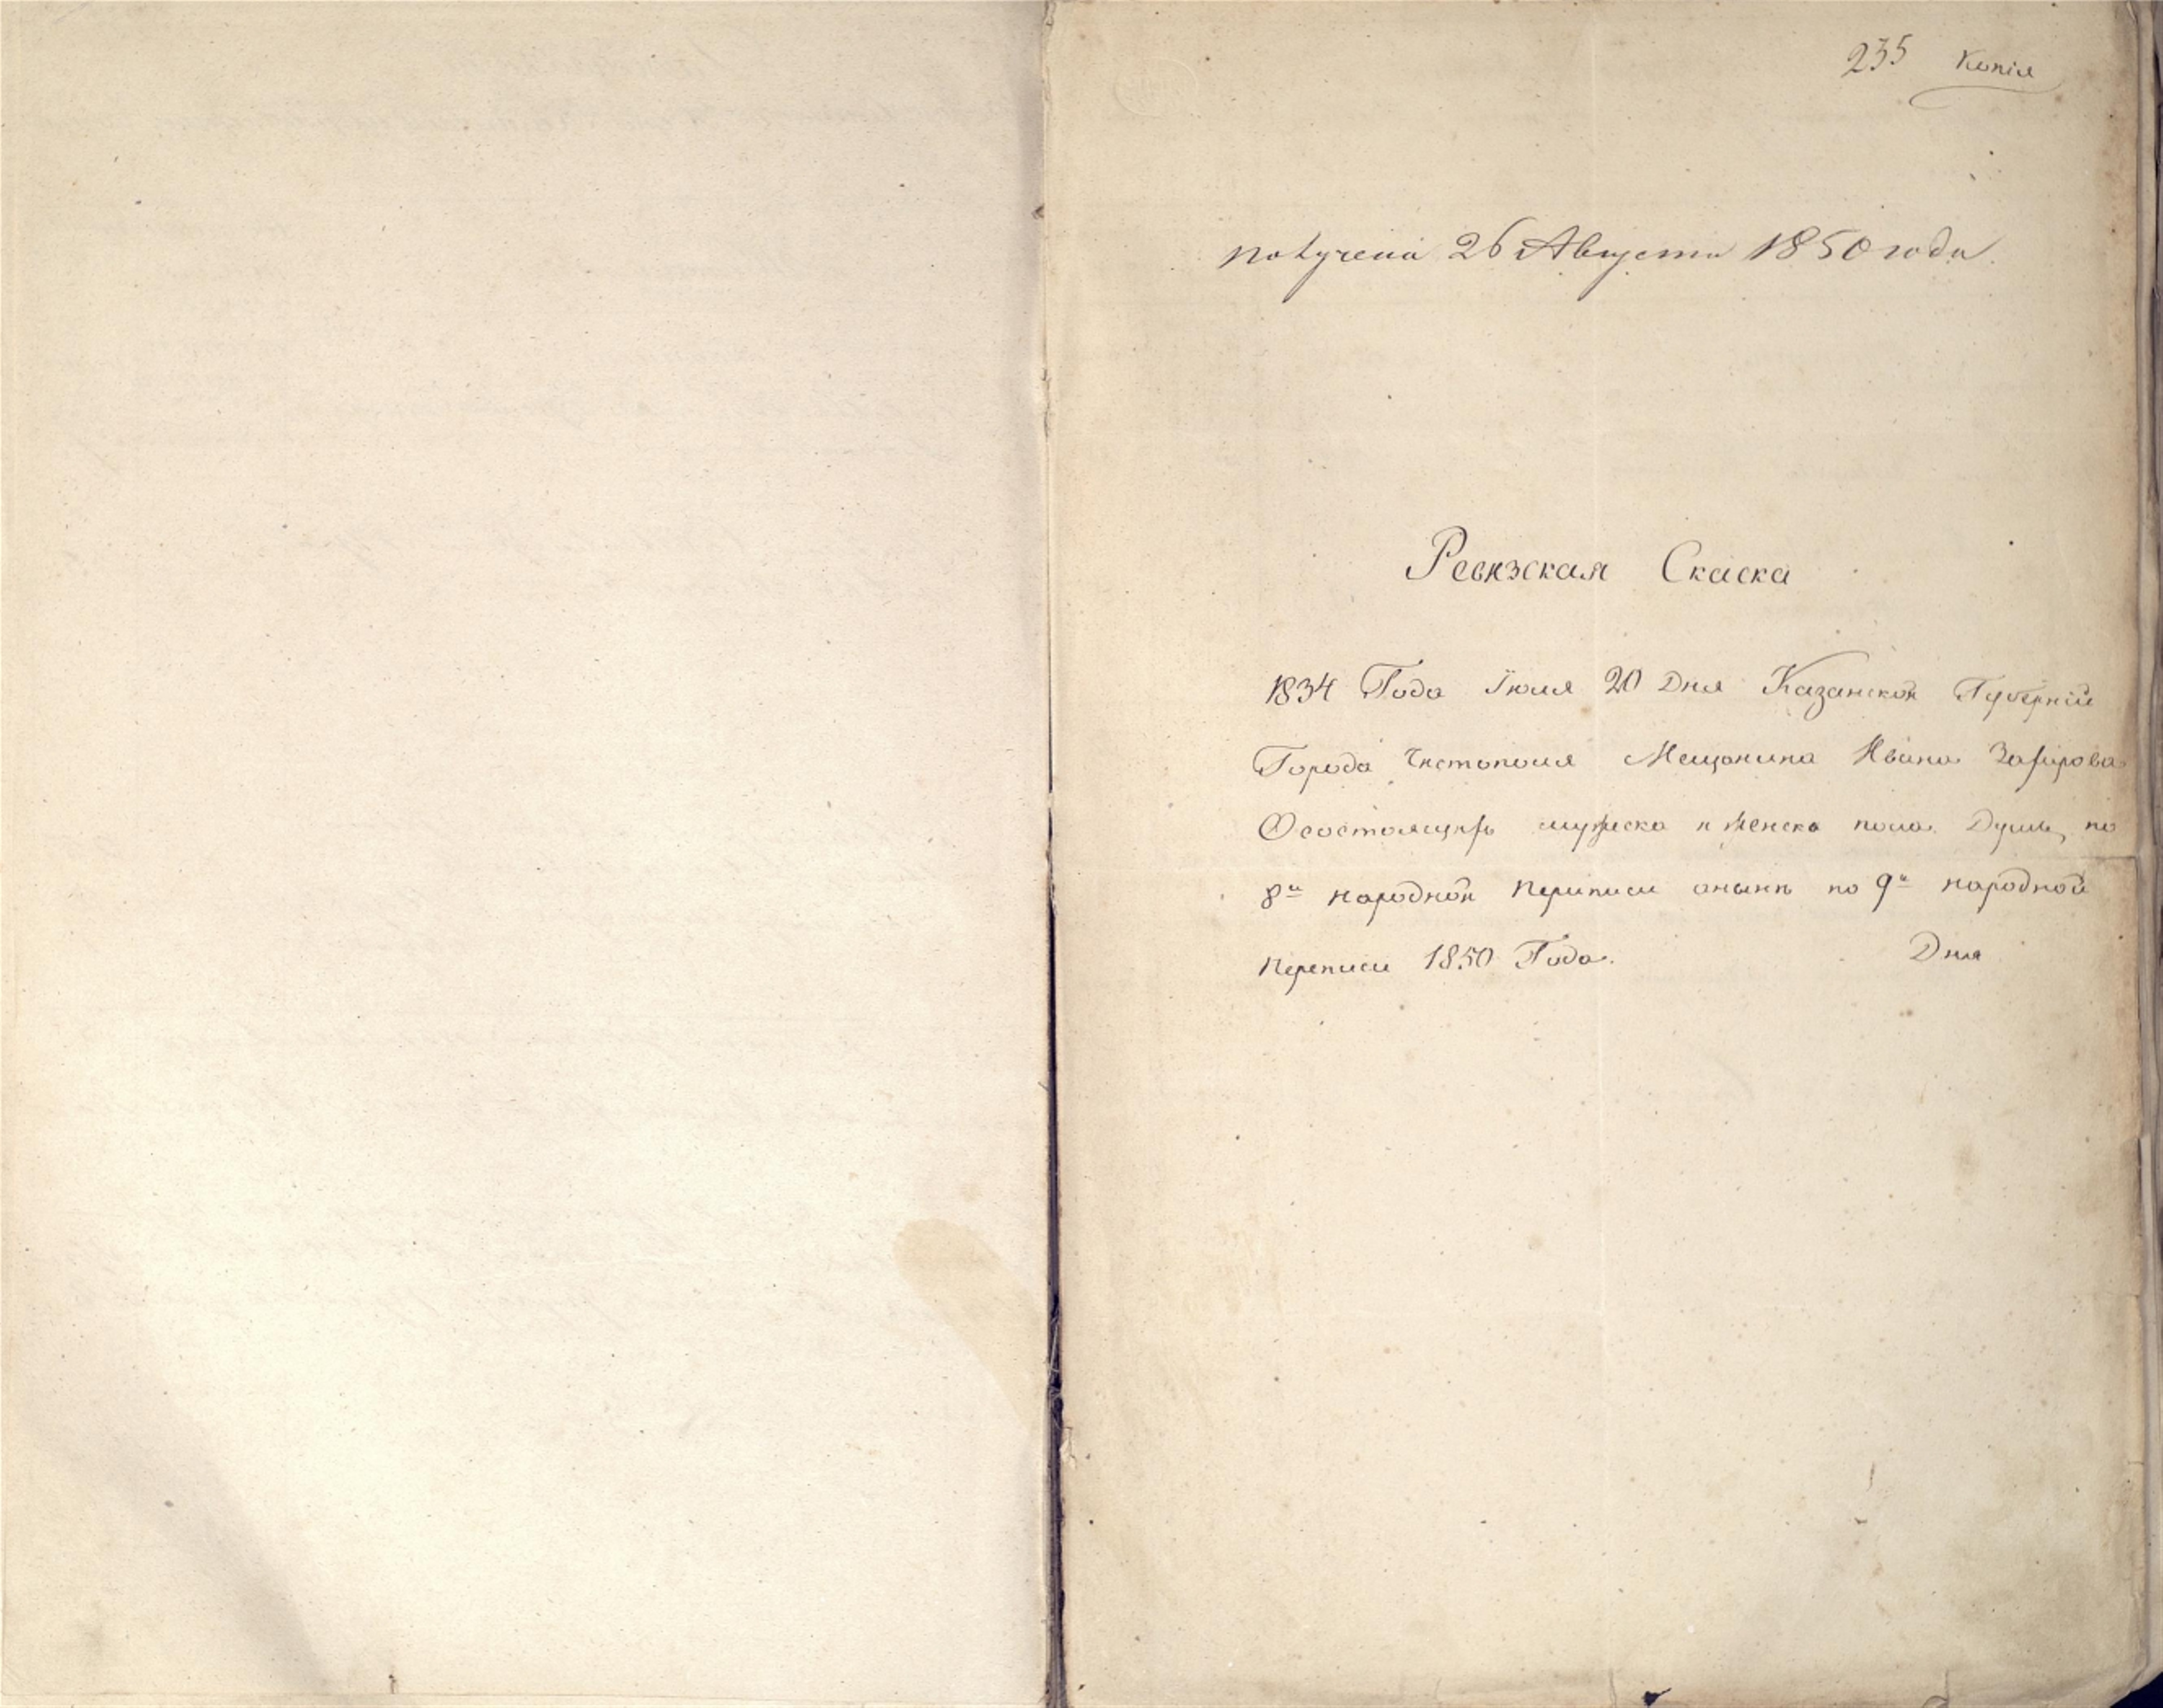 235 Копія
получена 26 Августа 1850 года.
Ревизская Скаска
1834 Года Іюля 20 Дня Казанской Губерніи
Города Чистополя Мещанина Ивана
Осостоящихъ мужеска и женска пола Душь, по
8й народной Периписи аныне по 9й народной
Переписи 1850 Года. Дня